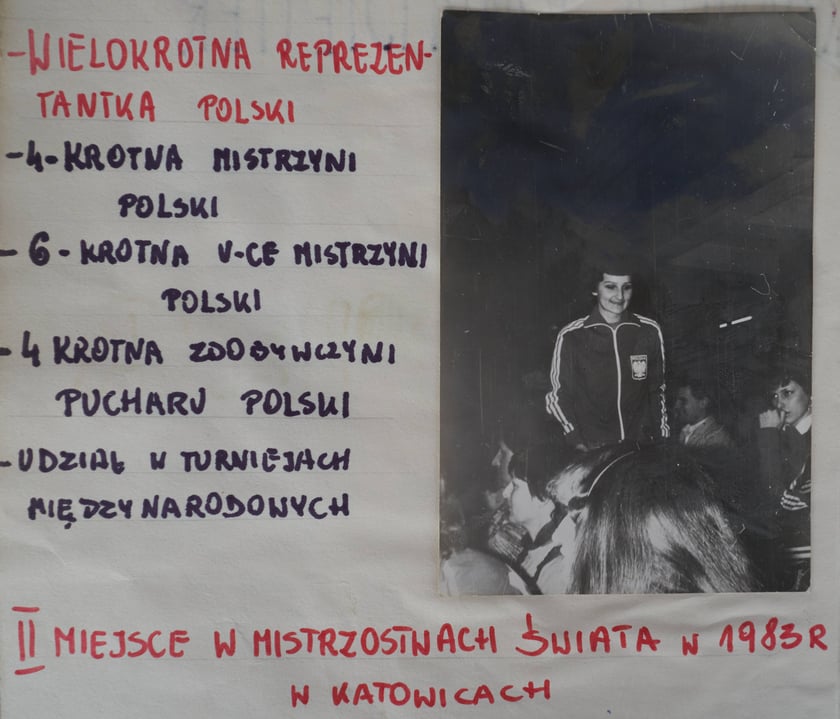 -WIELOKROTNA REPREZEN-
TANTKA POLSKI
-4-KROTNA MISTRZYNI
POLSKI
- 6-KROTNA V-CE MISTRZYNI
POLSKI
- 4 KROTNA ZDOBYWCZYNI
PUCHARU POLSKI
-UDZIAŁ W TURNIEJACH
MIĘDZYNARODOWYCH
II MIEJSCE W MISTRZOSTWACH ŚWIATA W 1983R
W KATOWICACH